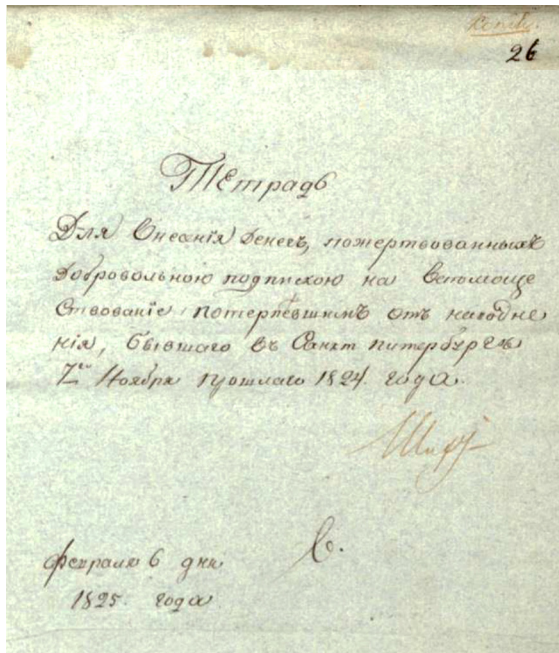 26
Тетрадь
Для Внесенія денегъ, пожертвованныхъ
добровольною подпискою на Вспомоще
ствованіе потерпѣвшимъ отъ наводне
нія, бывшаго въ Санкт питербургѣ
7го Ноября прошлаго 1824. года.
С.
февраля 6 дня
1825. года